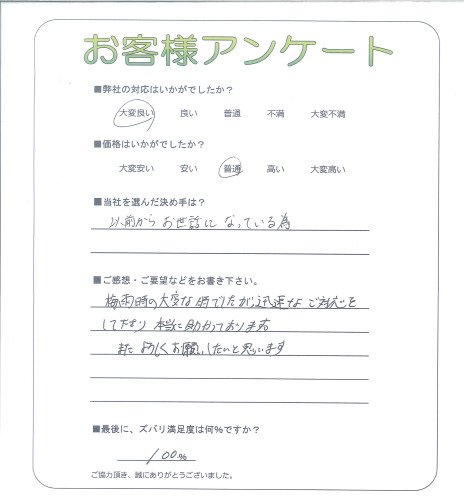 お客様アンケート
■弊社の対応はいかがでしたか?
大変良い 良い 普通 不満 大変不満
■価格はいかがでしたか?
大変安い 安い 普通 高い 大変高い
■当社を選んだ決め手は?
以前からお世話になっている為
■ご感想・ご要望などをお書き下さい。
梅雨時の大変な時でしたが迅速なご対応を
して下さり本当に助かっております
またよろしくお願いしたいと思います
■最後に、ズバリ満足度は何%ですか?
100%
ご協力頂き、誠にありがとうございました。